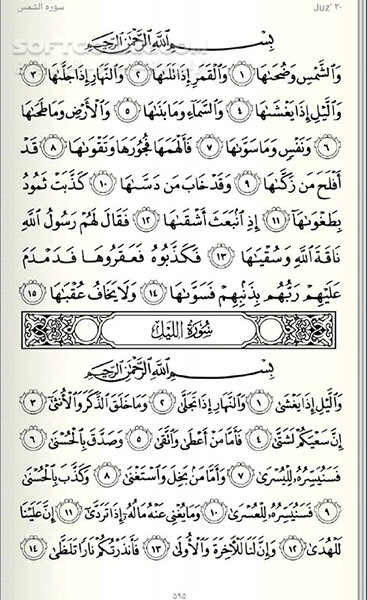 سورة الشمس Juz' ٣٠
بِسْمِ اللَّهِ الرَّحْمَٰنِ الرَّحِيمِ
وَالشَّمْسِ وَضُحَاهَا ١ وَالْقَمَرِ إِذَا تَلَاهَا ٢ وَالنَّهَارِ إِذَا جَلَّاهَا ٣
وَاللَّيْلِ إِذَا يَغْشَاهَا ٤ وَالسَّمَاءِ وَمَا بَنَاهَا ٥ وَالْأَرْضِ وَمَا طَحَاهَا
٦ وَنَفْسٍ وَمَا سَوَّاهَا ٧ فَأَلْهَمَهَا فُجُورَهَا وَتَقْوَاهَا ٨ قَدْ
أَفْلَحَ مَن زَكَّاهَا ٩ وَقَدْ خَابَ مَن دَسَّاهَا ١٠ كَذَّبَتْ ثَمُودُ
بِطَغْوَاهَا ١١ إِذِ انبَعَثَ أَشْقَاهَا ١٢ فَقَالَ لَهُمْ رَسُولُ اللَّهِ
نَاقَةَ اللَّهِ وَسُقْيَاهَا ١٣ فَكَذَّبُوهُ فَعَقَرُوهَا فَدَمْدَمَ
عَلَيْهِمْ رَبُّهُم بِذَنبِهِمْ فَسَوَّاهَا ١٤ وَلَا يَخَافُ عُقْبَاهَا ١٥
سُورَةُ اللَّيْلِ
بِسْمِ اللَّهِ الرَّحْمَٰنِ الرَّحِيمِ
وَاللَّيْلِ إِذَا يَغْشَىٰ ١ وَالنَّهَارِ إِذَا تَجَلَّىٰ ٢ وَمَا خَلَقَ الذَّكَرَ وَالْأُنثَىٰ ٣
إِنَّ سَعْيَكُمْ لَشَتَّىٰ ٤ فَأَمَّا مَنْ أَعْطَىٰ وَاتَّقَىٰ ٥ وَصَدَّقَ بِالْحُسْنَىٰ ٦
فَسَنُيَسِّرُهُ لِلْيُسْرَىٰ ٧ وَأَمَّا مَن بَخِلَ وَاسْتَغْنَىٰ ٨ وَكَذَّبَ بِالْحُسْنَىٰ
٩ فَسَنُيَسِّرُهُ لِلْعُسْرَىٰ ١٠ وَمَا يُغْنِي عَنْهُ مَالُهُ إِذَا تَرَدَّىٰ ١١ إِنَّ عَلَيْنَا
لَلْهُدَىٰ ١٢ وَإِنَّ لَنَا لَلْآخِرَةَ وَالْأُولَىٰ ١٣ فَأَنذَرْتُكُمْ نَارًا تَلَظَّىٰ ١٤
٥٩٥